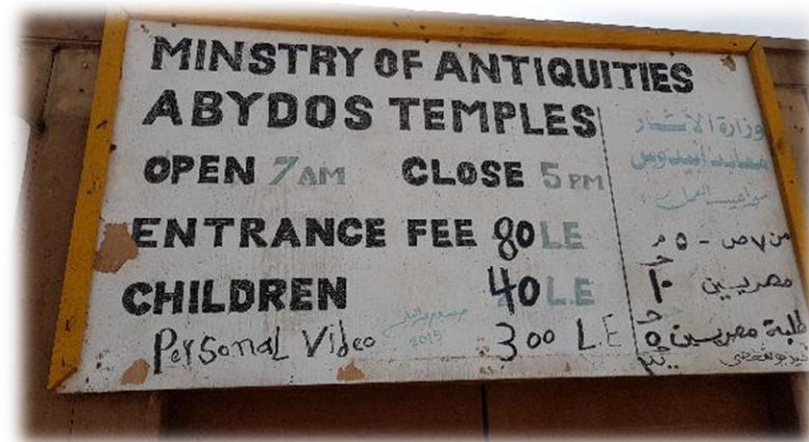 MINSTRY OF ANTIQUITIES
ABYDOS TEMPLES
OPEN 7 AM CLOSE 5 PM
ENTRANCE FEE 80 L.E
CHILDREN 40 L.E
Personal Video 300 L.E
2015
وزارة الآثار
معابد أبيدوس
مواعيد العمل
من ٧ ص - ٥ م
مصريين ١٠
طلبة مصريين ٥